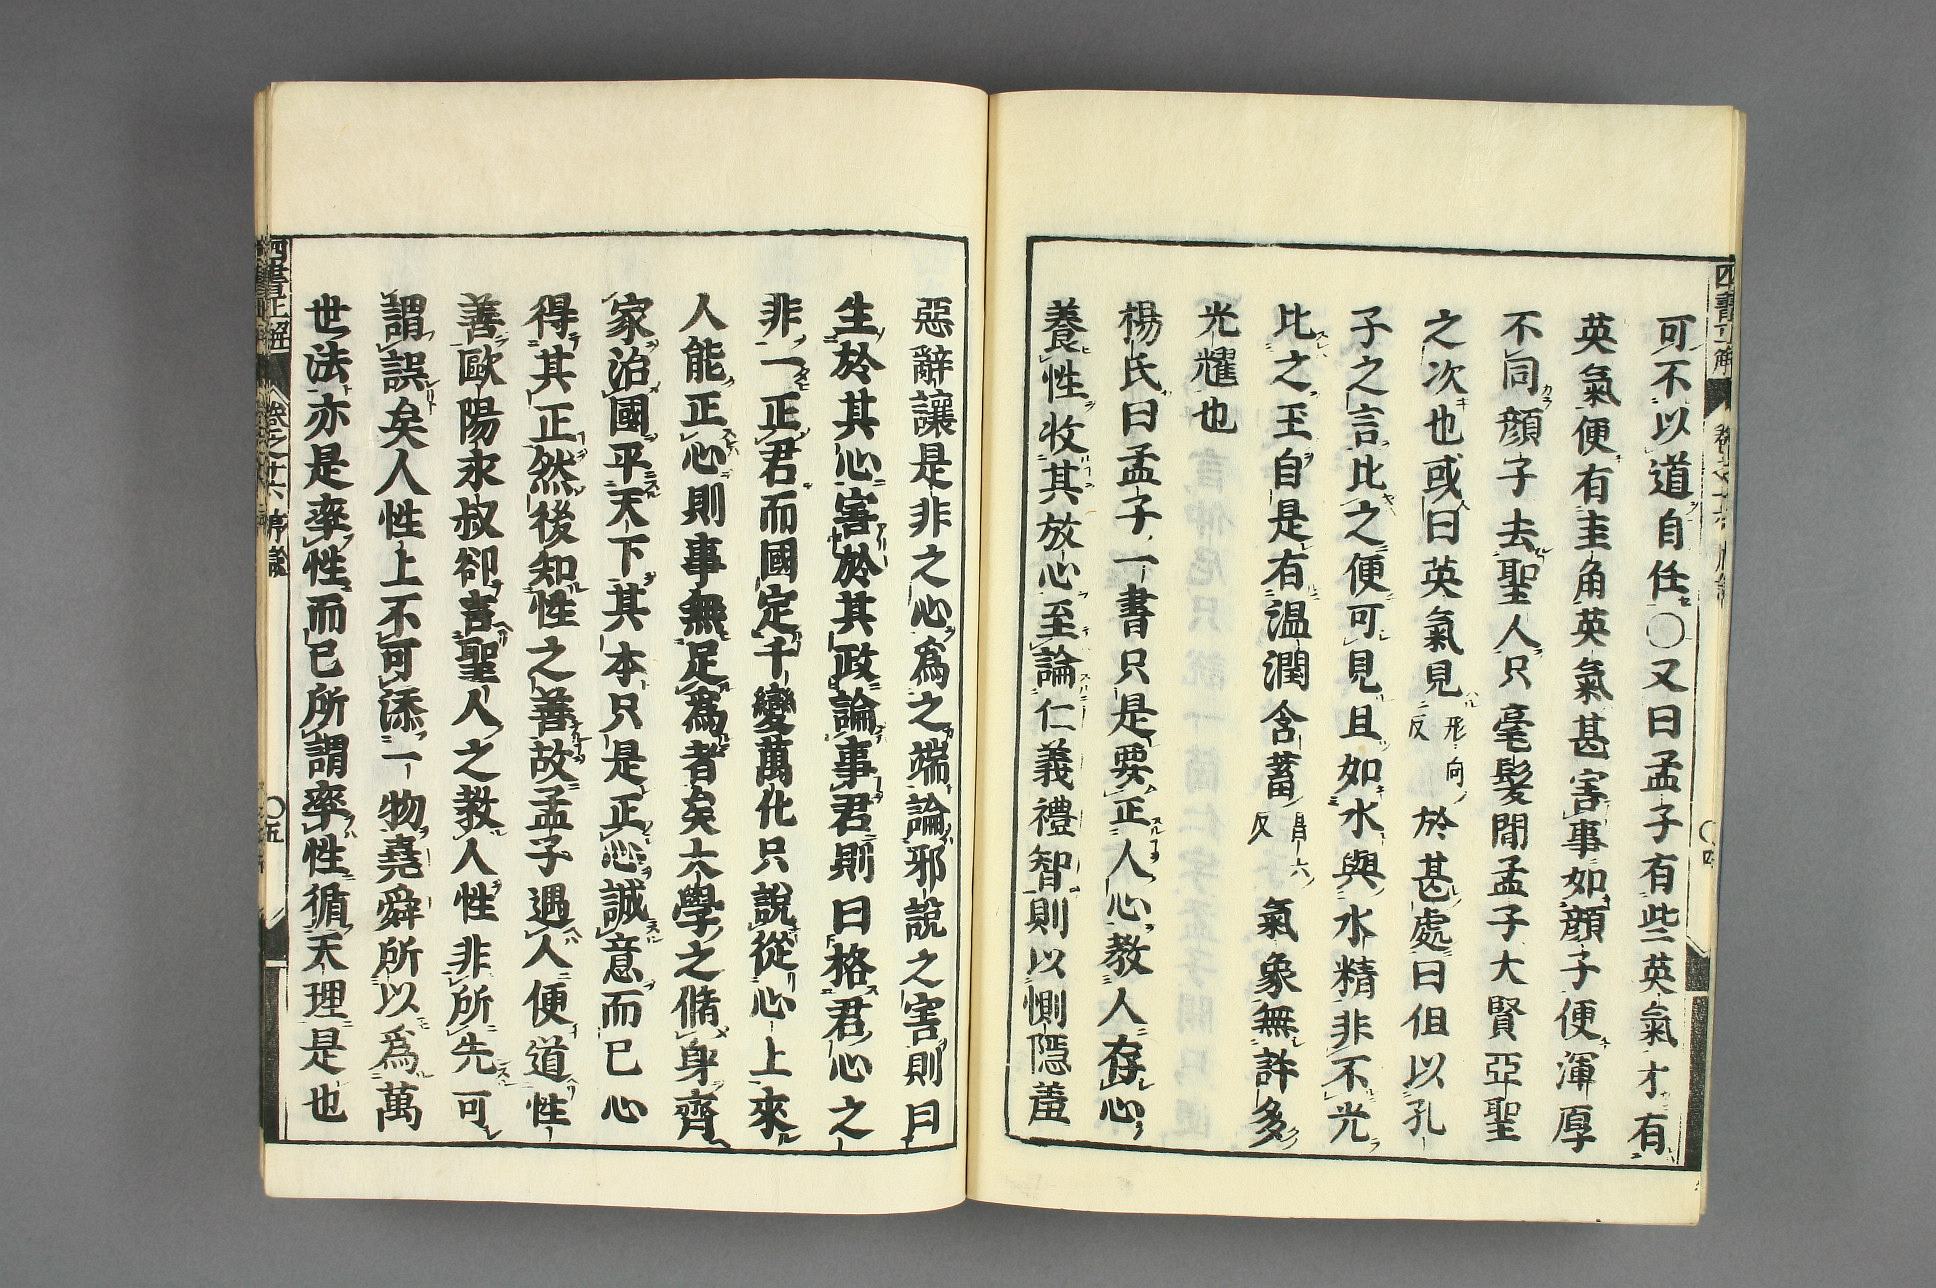 可不以道自任〇又曰孟子有些英氣才有
英氣便有圭角英氣甚害事如顔子便渾厚
不同顔子去聖人只毫髮閒孟子大賢亞聖
之次也或曰英氣見形甸反於甚處曰但以孔
子之言比之便可見且如水與水精非不光
比之玉自是有温潤含蓄昌六反氣象無許多
光耀也
楊氏曰孟子一書只是要正人心教人存心
養性收其放心至論仁義禮智則以惻隱羞
惡辭讓是非之心爲之端論邪説之害則曰
生於其心害於其政論事君則曰格君心之
非一正君而國定千變萬化只說從心上來
人能正心則事無足爲者矣大學之脩身齊
家治國平天下其本只是正心誠意而已心
得其正然後知性之善故孟子遇人便道性
善歐陽永叔卻言聖人之教人性非所先可
謂誤矣人性上不可添一物堯舜所以爲萬
世法亦是率性而已所謂率性循天理是也
四書正解
卷之十六 序說
〇五